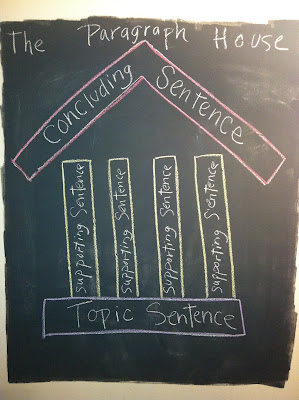 The Paragraph House
Concluding Sentence
Supporting Sentence
Supporting Sentence
Supporting Sentence
Supporting Sentence
Topic Sentence